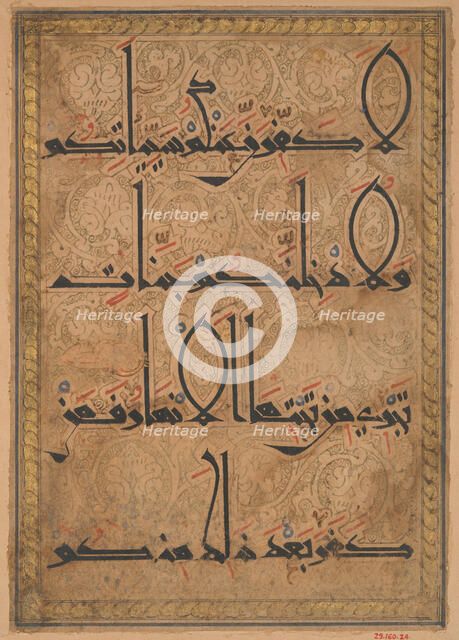 لأكفرن عنكم سيئاتكم
Heritage Heritage
ولأدخلنكم جنات
Heritage © Heritage
تجري من تحتها الأنهار فمن
Heritage Heritage
كفر بعد ذلك منكم
29.160.24